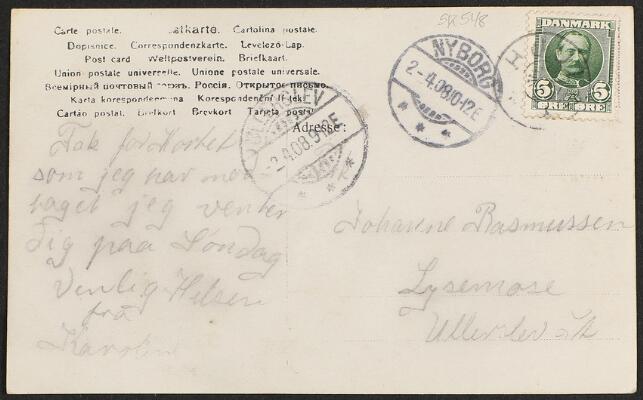 Carte postale. Weltkarte. Cartolina postale.
Dopisnice. Correspondenzkarte. Levelező-Lap.
Post card Weltpostverein. Briefkaart.
Union postale universelle. Unione postale universale.
Всемірный почтовый союзъ. Россія. Открытое письмо.
Karta korespondencyjna Korespondenční listek.
Cartão postal. Brefkort Brevkort Tarjeta postal
Adresse:
SK 548
NYBORG
2-4.08.10-12E
2.4.08.9-12E
DANMARK
5 5
ØRE ØRE
Tak for Kortet
som jeg har mod
taget jeg venter
Dig paa Søndag
Venlig Hilsen
fra
Karoline
Johanne Rasmussen
Lysemose
Ullerslev St